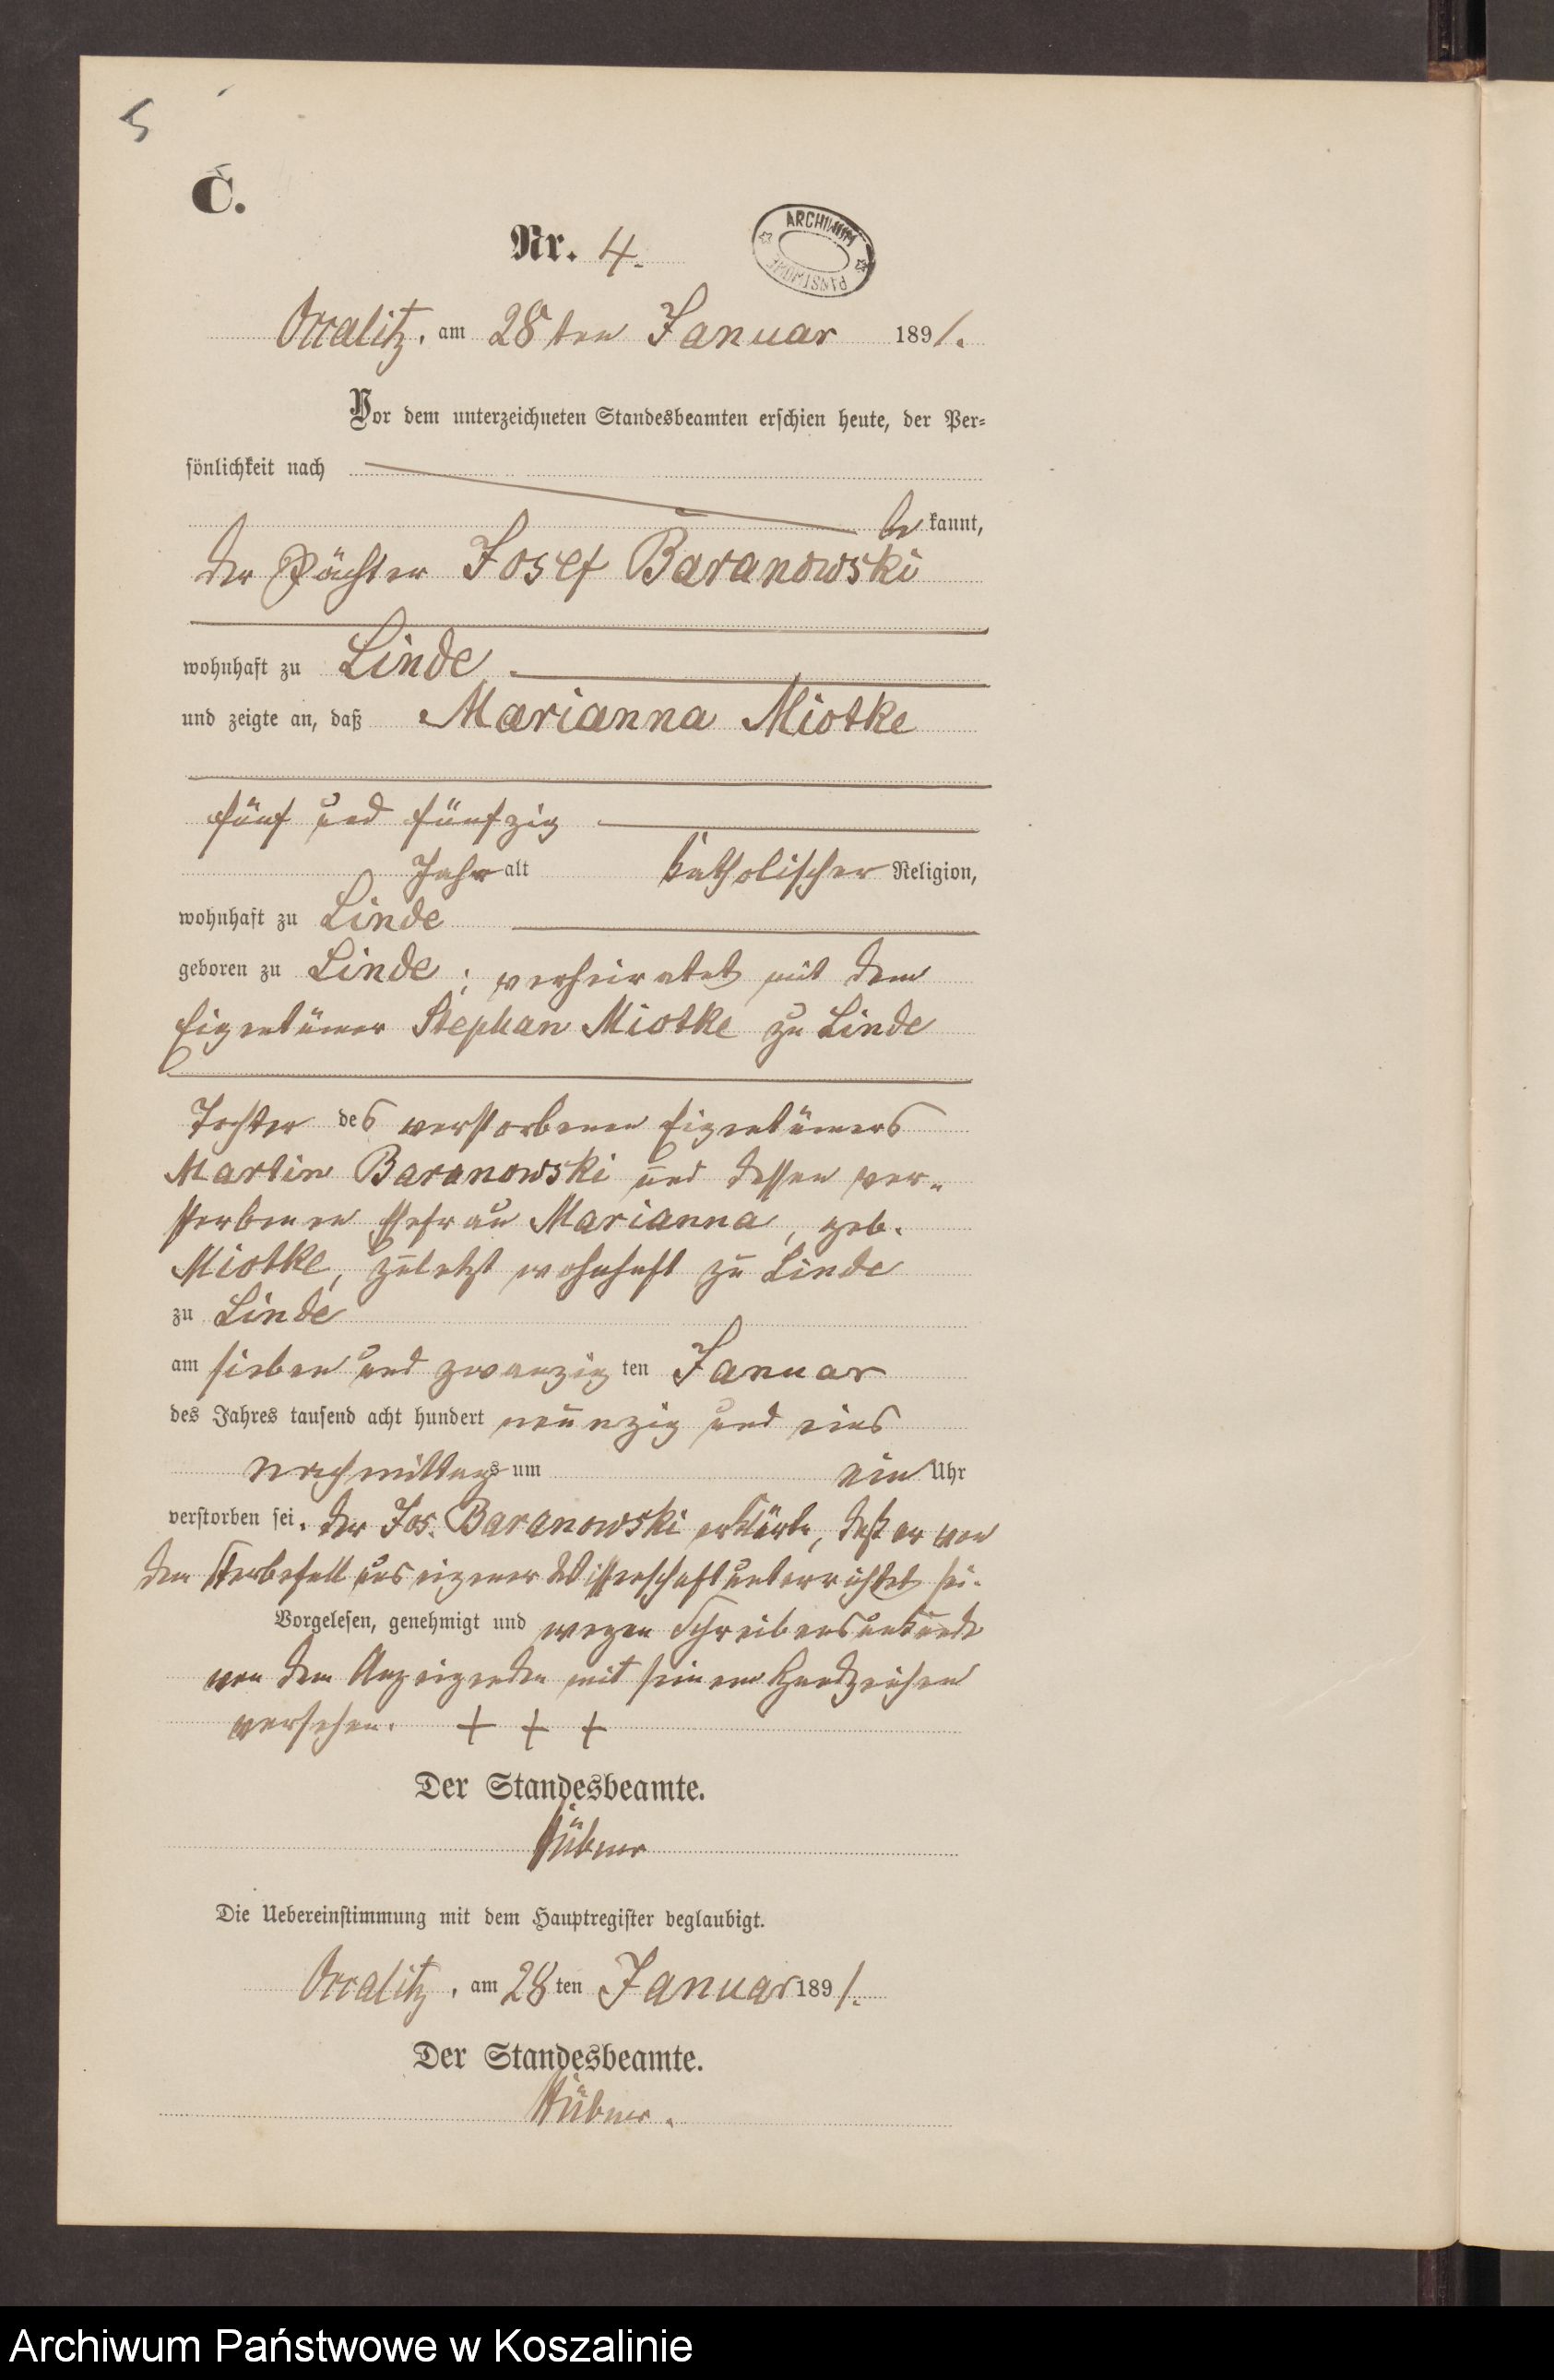 5
C.
Nr. 4.
ARCHIWUM PAŃSTWOWE
Occalitz, am 28ten Januar 1891.
Vor dem unterzeichneten Standesbeamten erschien heute, der Per-
sönlichkeit nach
bekannt,
der Pächter Josef Baranowski
wohnhaft zu Linde
und zeigte an, daß Marianna Miotke
fünf und fünfzig
Jahr alt katholischer Religion,
wohnhaft zu Linde
geboren zu Linde; verheiratet mit dem
Eigentümer Stephan Miotke zu Linde
Tochter des verstorbenen Eigentümers
Martin Baranowski und dessen ver-
storbenen Ehefrau Marianna, geb.
Miotke, zuletzt wohnhaft zu Linde
zu Linde
am sieben und zwanzigten Januar
des Jahres tausend acht hundert neunzig und eins
Nachmittags um ein Uhr
verstorben sei. Der Jos. Baranowski erklärte, daß er von
dem Sterbefall aus eigener Wissenschaft unterrichtet sei.
Vorgelesen, genehmigt und wegen Schreibensunkunde
von dem Anzeigenden mit seinem Handzeichen
versehen. + + +
Der Standesbeamte.
Hübner
Die Uebereinstimmung mit dem Hauptregister beglaubigt.
Occalitz, am 28ten Januar 1891.
Der Standesbeamte.
Hübner.
Archiwum Państwowe w Koszalinie